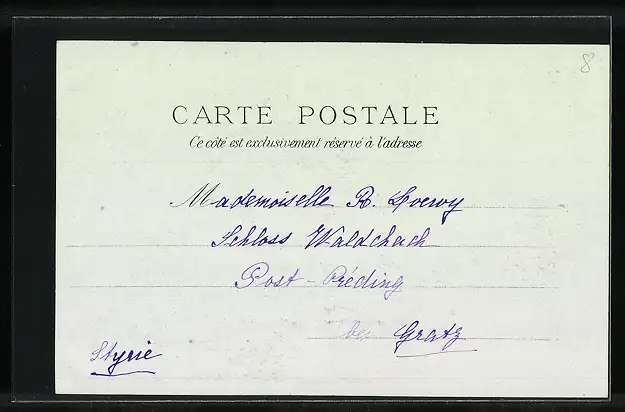 8
CARTE POSTALE
Ce côté est exclusivement réservé à l'adresse
Mademoiselle R. Loewy
Schloss Waldchach
Post - Préding
bei Gratz
Styrie